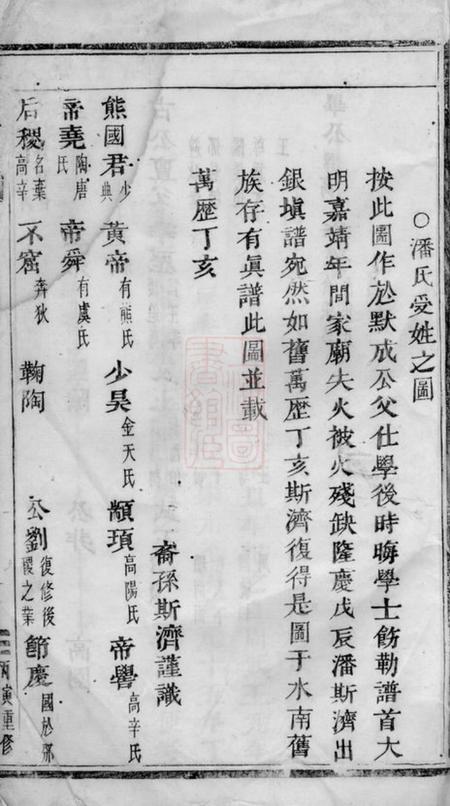 ○潘氏受姓之圖
按此圖作於默成公父仕學後時晦學士飭勒譜首大
明嘉靖年間家廟失火被火殘缺隆慶戊辰潘斯濟出
銀塡譜宛然如舊萬歷丁亥斯濟復得是圖于水南舊
族存有眞譜此圖並載
萬歷丁亥
裔孫斯濟謹識
熊國君少典 黃帝有熊氏 少昊金天氏 顓頊高陽氏 帝嚳高辛氏
帝堯陶唐氏 帝舜有虞氏
后稷名棄高辛 不窋奔狄 鞠陶 公劉復修後稷之業 節慶國於邠
丙寅重修